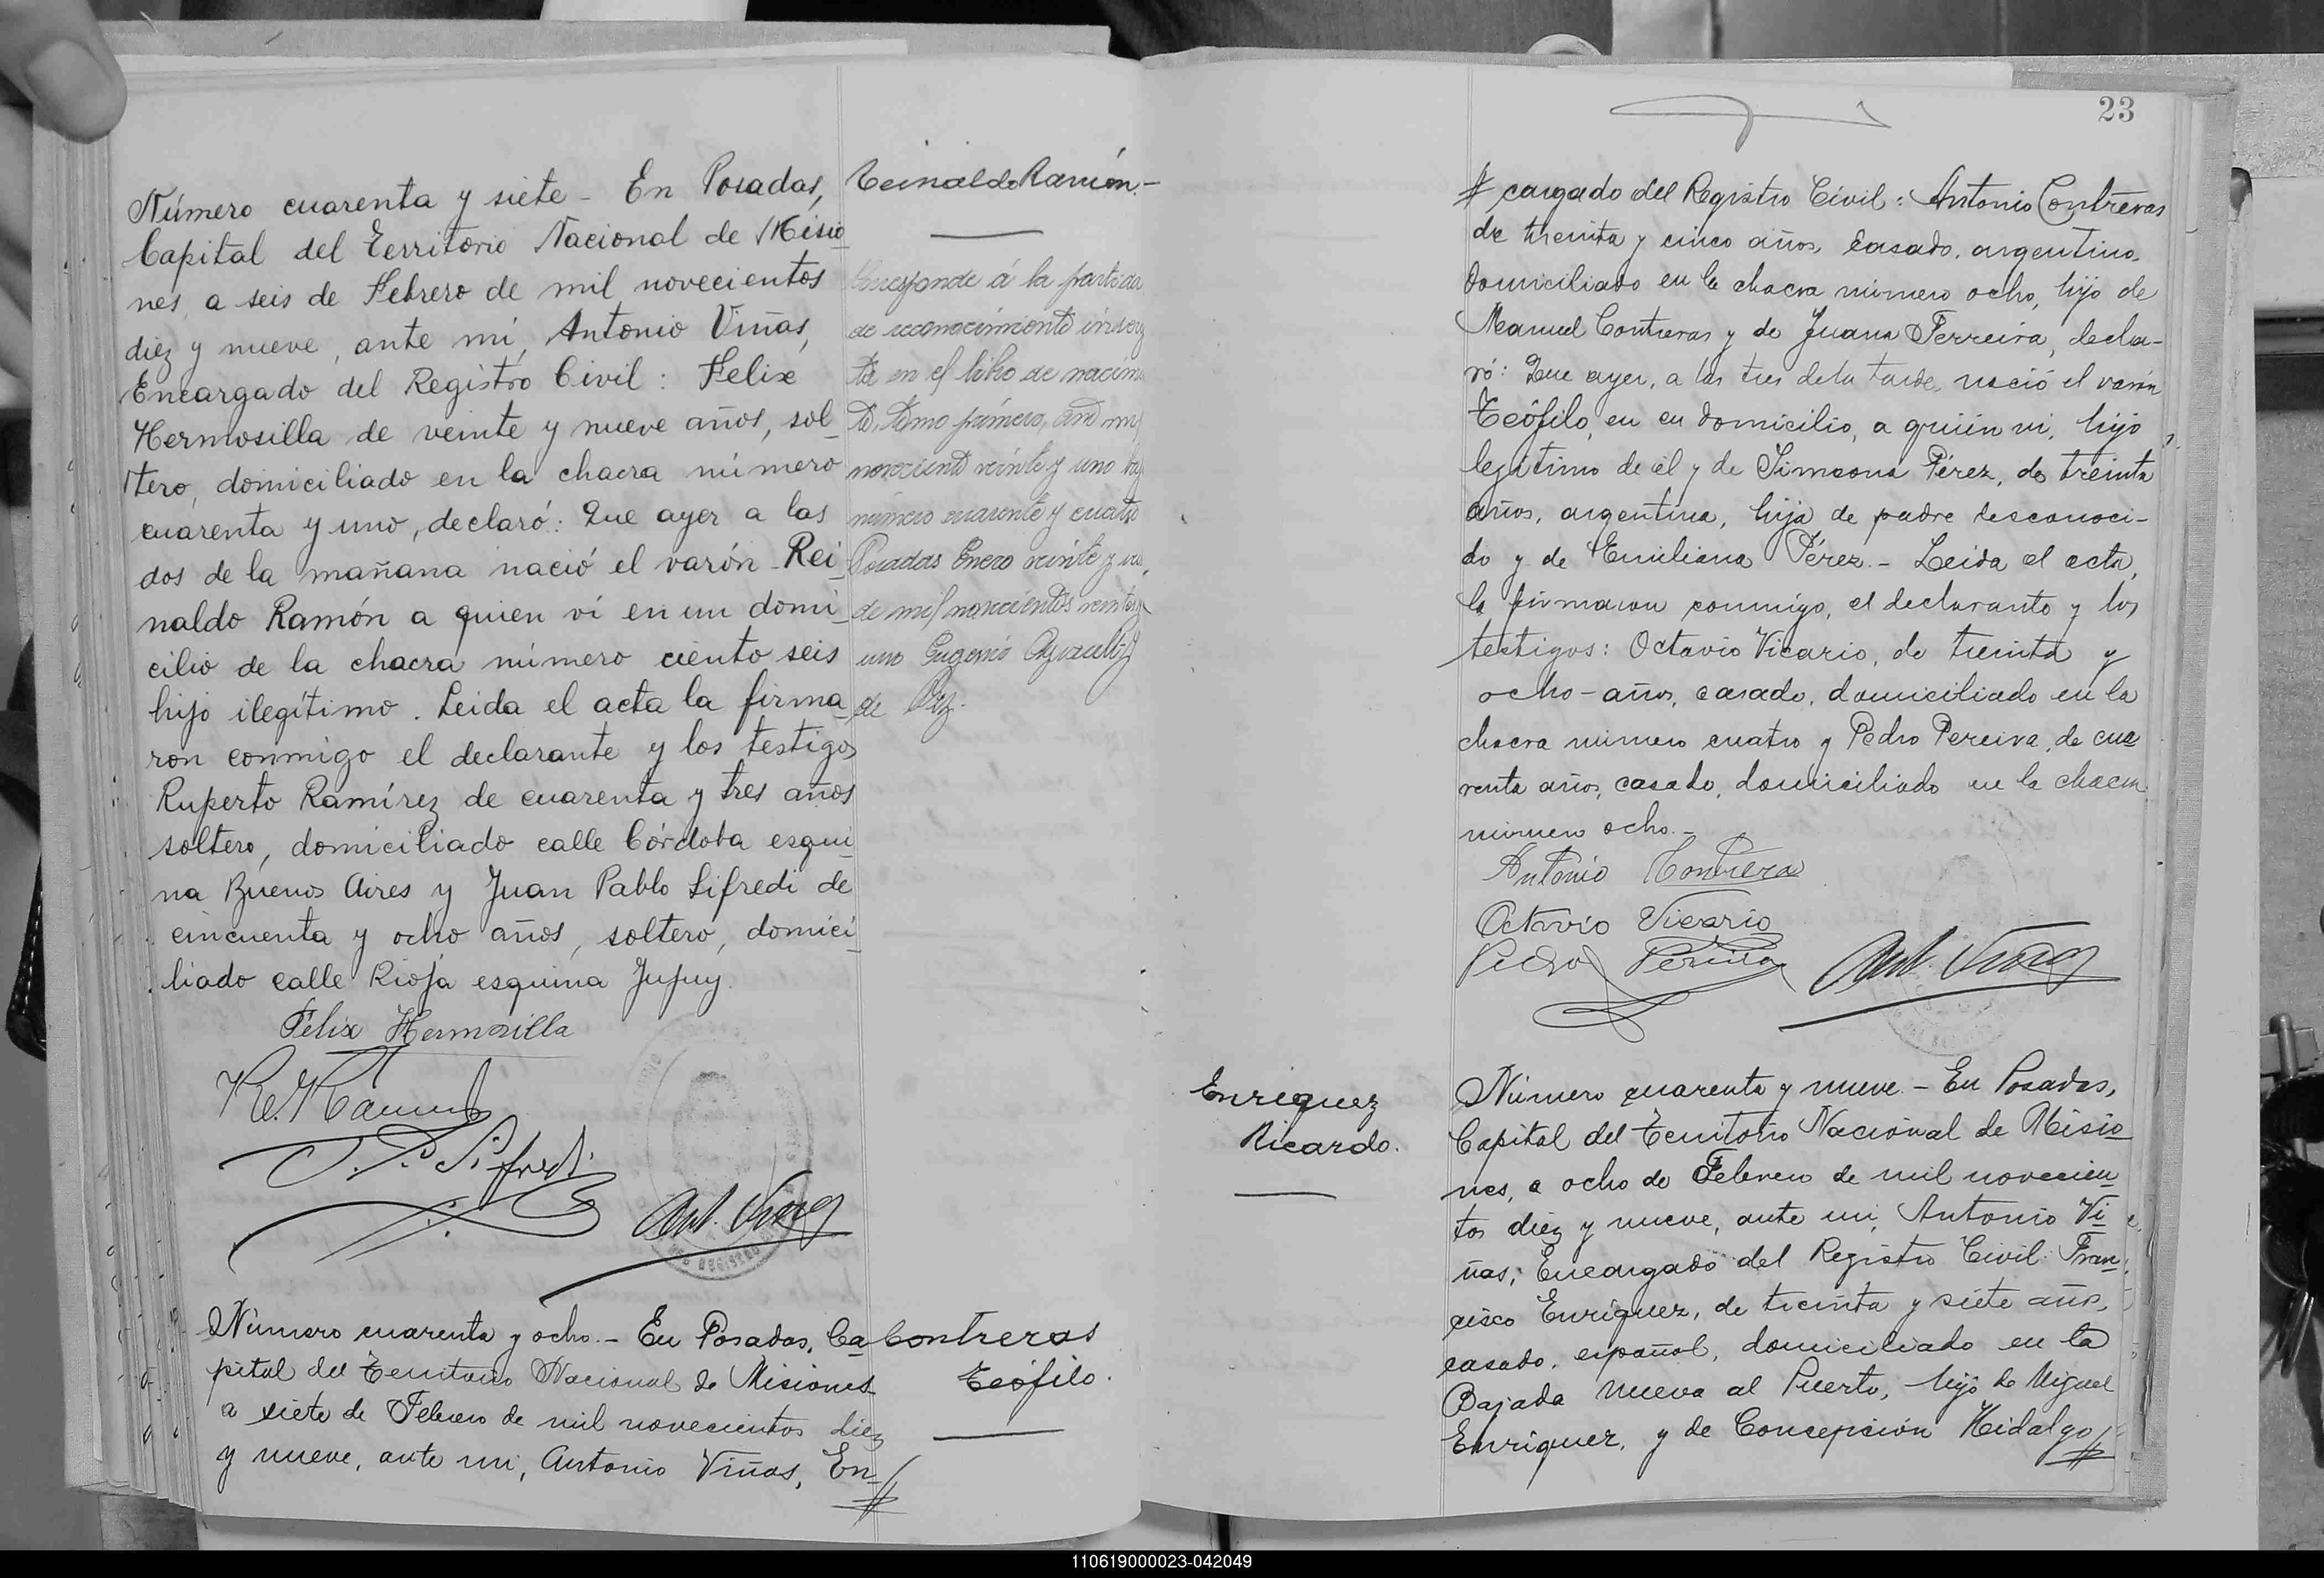 Número cuarenta y siete - En Posadas,
Capital del Territorio Nacional de Misio
nes, a seis de Febrero de mil novecientos
diez y nueve, ante mí, Antonio Viñas,
Encargado del Registro Civil: Felix
Hermosilla de veinte y nueve años, sol
tero, domiciliado en la chacra número
cuarenta y uno, declaró: Que ayer a las
dos de la mañana nació el varón Rei
naldo Ramón a quien ví en un domi
cilio de la chacra número ciento seis
hijo ilegítimo. Leida el acta la firma
ron conmigo el declarante y los testigos
Ruperto Ramírez de cuarenta y tres años
soltero, domiciliado calle Córdoba esqui
na Buenos Aires y Juan Pablo Sifredi de
cincuenta y ocho años, soltero, domici
liado calle Rioja esquina Jujuy.
Felix Hermosilla
J. P. Sifredi
Ant. Viñas
Reinaldo Ramón.-
Corresponde á la partida
de reconocimiento inser
ta en el libro de nacim
to, tomo primero, año mil
novecientos veinte y uno
número cuarenta y cuatro
Posadas Enero veinte y
de mil novecientos veinte y
uno Eugenio
de Paz.
Número cuarenta y ocho.- En Posadas, Ca
pital del Territorio Nacional de Misiones
a siete de Febrero de mil novecientos diez
y nueve, ante mi, Antonio Viñas, En
#
Contreras
Teófilo.
23
# cargado del Registro Civil: Antonio Contreras
de treinta y cinco años, casado, argentino,
domiciliado en la chacra número ocho, hijo de
Manuel Contreras y de Juana Ferreira, decla-
ró: Que ayer, a las tres de la tarde, nació el varón
Teófilo, en su domicilio, a quién vi, hijo
legítimo de él y de Simeona Pérez, de treinta
años, argentina, hija de padre desconoci-
do y de Emiliana Pérez.- Leida el acta,
la firmaron conmigo, el declarante y los
testigos: Octavio Vicario, de treinta y
ocho-años, casado, domiciliado en la
chacra número cuatro y Pedro Pereira, de cua
renta años, casado, domiciliado en la chacra
número ocho.-
Antonio Contrera
Octavio Vicario
Pedro Pereira
Ant. Viñas
Enriquez
Ricardo.
Número cuarenta y nueve - En Posadas,
Capital del Territorio Nacional de Misio
nes, a ocho de Febrero de mil novecien
tos diez y nueve, ante mi, Antonio Vi
ñas, Encargado del Registro Civil: Fran
cisco Enriquez, de treinta y siete años,
casado, español, domiciliado en la
Bajada Nueva al Puerto, hijo de Miguel
Enriquez, y de Concepción Hidalgo
#
110619000023-042049